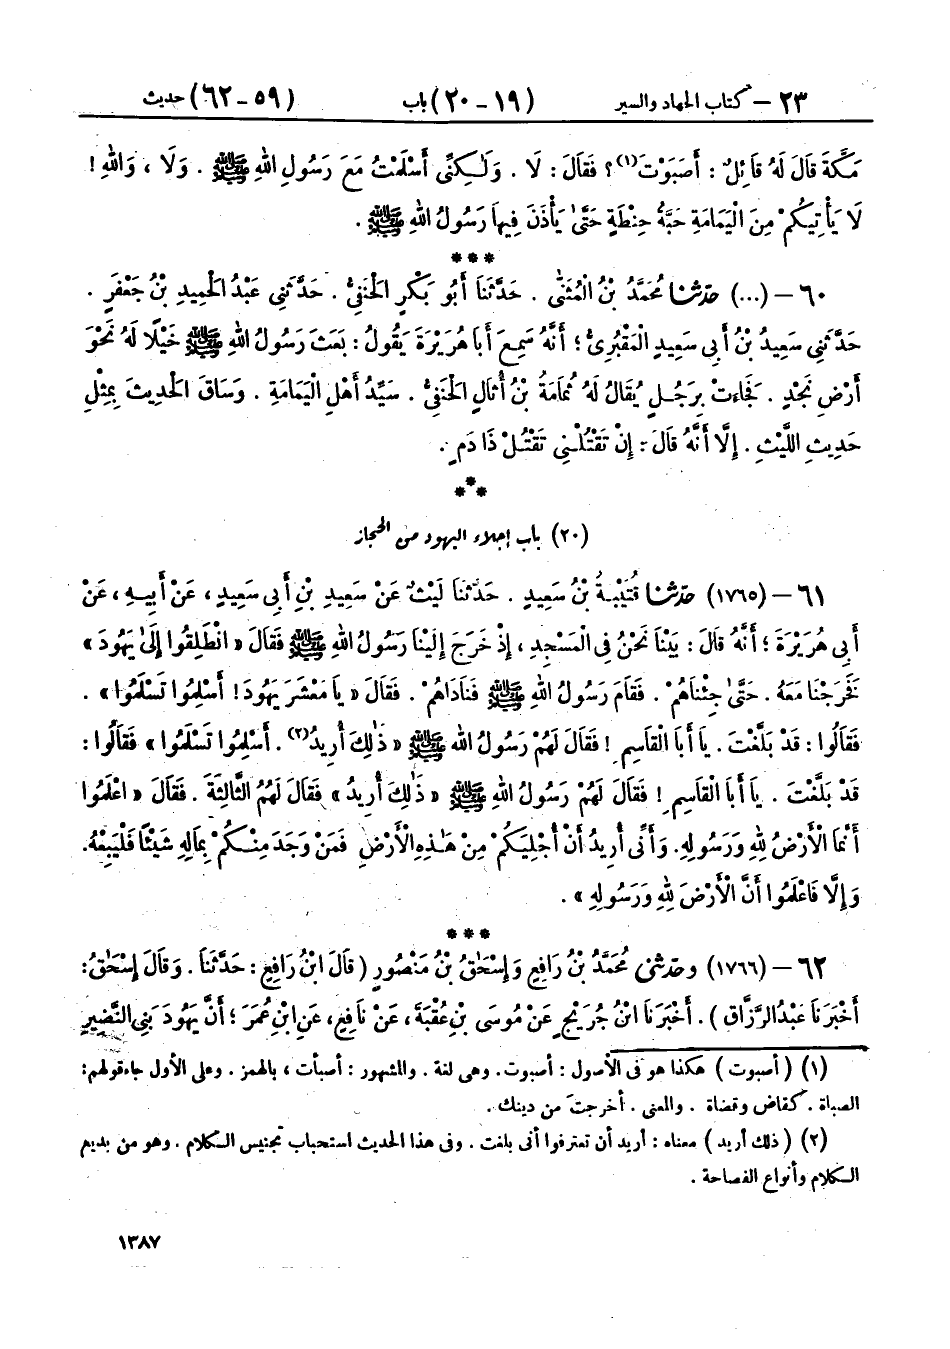 ٣٢ – كتاب الجهاد والسير (١٩ - ٢٠) باب (٥٩ - ٦٢) حديث
مَكَّةَ قَالَ لَهُ قَائِلٌ : أَصَبَوْتَ(١)؟ فَقَالَ : لَا . وَلَـٰكِنِّى أَسْلَمْتُ مَعَ رَسُولِ اللهِ ﷺ . وَلَا ، وَاللهِ !
لَا يَأْتِيكُمْ مِنَ الْيَمَامَةِ حَبَّةُ حِنْطَةٍ حَتَّىٰ يَأْذَنَ فِيهَا رَسُولُ اللهِ ﷺ .
***
٦٠ – (...) حَدَّثَنَا مُحَمَّدُ بْنُ الْمُثَنَّىٰ . حَدَّثَنَا أَبُو بَكْرٍ الْحَنَفِىُّ . حَدَّثَنِى عَبْدُ الْحَمِيدِ بْنُ جَعْفَرٍ .
حَدَّثَنِى سَعِيدُ بْنُ أَبِى سَعِيدٍ الْمَقْبُرِىُّ ؛ أَنَّهُ سَمِعَ أَبَا هُرَيْرَةَ يَقُولُ : بَعَثَ رَسُولُ اللهِ ﷺ خَيْلًا لَهُ نَحْوَ
أَرْضِ نَجْدٍ . فَجَاءَتْ بِرَجُلٍ يُقَالُ لَهُ ثُمَامَةُ بْنُ أُثَالٍ الْحَنَفِىُّ . سَيِّدُ أَهْلِ الْيَمَامَةِ . وَسَاقَ الْحَدِيثَ بِمِثْلِ
حَدِيثِ اللَّيْثِ . إِلَّا أَنَّهُ قَالَ : إِنْ تَقْتُلْنِى تَقْتُلْ ذَا دَمٍ .
***
(٢٠) باب إجلاء اليهود من الحجاز
٦١ – (١٧٦٥) حَدَّثَنَا قُتَيْبَةُ بْنُ سَعِيدٍ . حَدَّثَنَا لَيْثٌ عَنْ سَعِيدِ بْنِ أَبِى سَعِيدٍ ، عَنْ أَبِيهِ ، عَنْ
أَبِى هُرَيْرَةَ ؛ أَنَّهُ قَالَ : بَيْنَا نَحْنُ فِى الْمَسْجِدِ ، إِذْ خَرَجَ إِلَيْنَا رَسُولُ اللهِ ﷺ فَقَالَ « انْطَلِقُوا إِلَىٰ يَهُودَ »
فَخَرَجْنَا مَعَهُ . حَتَّىٰ جِئْنَاهُمْ . فَقَامَ رَسُولُ اللهِ ﷺ فَنَادَاهُمْ . فَقَالَ « يَا مَعْشَرَ يَهُودَ ! أَسْلِمُوا تَسْلَمُوا » .
فَقَالُوا : قَدْ بَلَّغْتَ . يَا أَبَا الْقَاسِمِ ! فَقَالَ لَهُمْ رَسُولُ اللهِ ﷺ « ذَٰلِكَ أُرِيدُ(٢) . أَسْلِمُوا تَسْلَمُوا » فَقَالُوا :
قَدْ بَلَّغْتَ . يَا أَبَا الْقَاسِمِ ! فَقَالَ لَهُمْ رَسُولُ اللهِ ﷺ « ذَٰلِكَ أُرِيدُ » فَقَالَ لَهُمُ الثَّالِثَةَ . فَقَالَ « اعْلَمُوا
أَنَّمَا الْأَرْضُ لِلهِ وَرَسُولِهِ . وَأَنِّى أُرِيدُ أَنْ أُجْلِيَكُمْ مِنْ هَـٰذِهِ الْأَرْضِ فَمَنْ وَجَدَ مِنْكُمْ بِمَالِهِ شَيْئًا فَلْيَبِعْهُ .
وَإِلَّا فَاعْلَمُوا أَنَّ الْأَرْضَ لِلهِ وَرَسُولِهِ » .
***
٦٢ – (١٧٦٦) وَحَدَّثَنِى مُحَمَّدُ بْنُ رَافِعٍ وَإِسْحَٰقُ بْنُ مَنْصُورٍ ( قَالَ ابْنُ رَافِعٍ : حَدَّثَنَا . وَقَالَ إِسْحَٰقُ :
أَخْبَرَنَا عَبْدُ الرَّزَّاقِ ) . أَخْبَرَنَا ابْنُ جُرَيْجٍ عَنْ مُوسَى بْنِ عُقْبَةَ ، عَنْ نَافِعٍ ، عَنِ ابْنِ عُمَرَ ؛ أَنَّ يَهُودَ بَنِى النَّضِيرِ
(١) ( أصبوت ) هكذا هو فى الأصول : أصبوت . وهى لغة . والمشهور : أصبأت ، بالهمز . وعلى الأول جاء قولهم :
الصباة . كقاض وقضاة . والمعنى . أخرجت من دينك .
(٢) ( ذلك أريد ) معناه : أريد أن تعترفوا أنى بلغت . وفى هذا الحديث استحباب تجنيس الكلام . وهو من بديع
الكلام وأنواع الفصاحة .
١٣٨٧